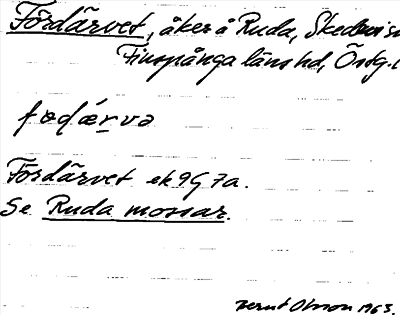 Fördärvet, åker å Ruda, Skedevi sn
Finspånga läns hd, Östg. l
fɵdǽrvə
Fördärvet ek 9G7a.
Se Ruda mossar.
Bernt Olsson 1963.